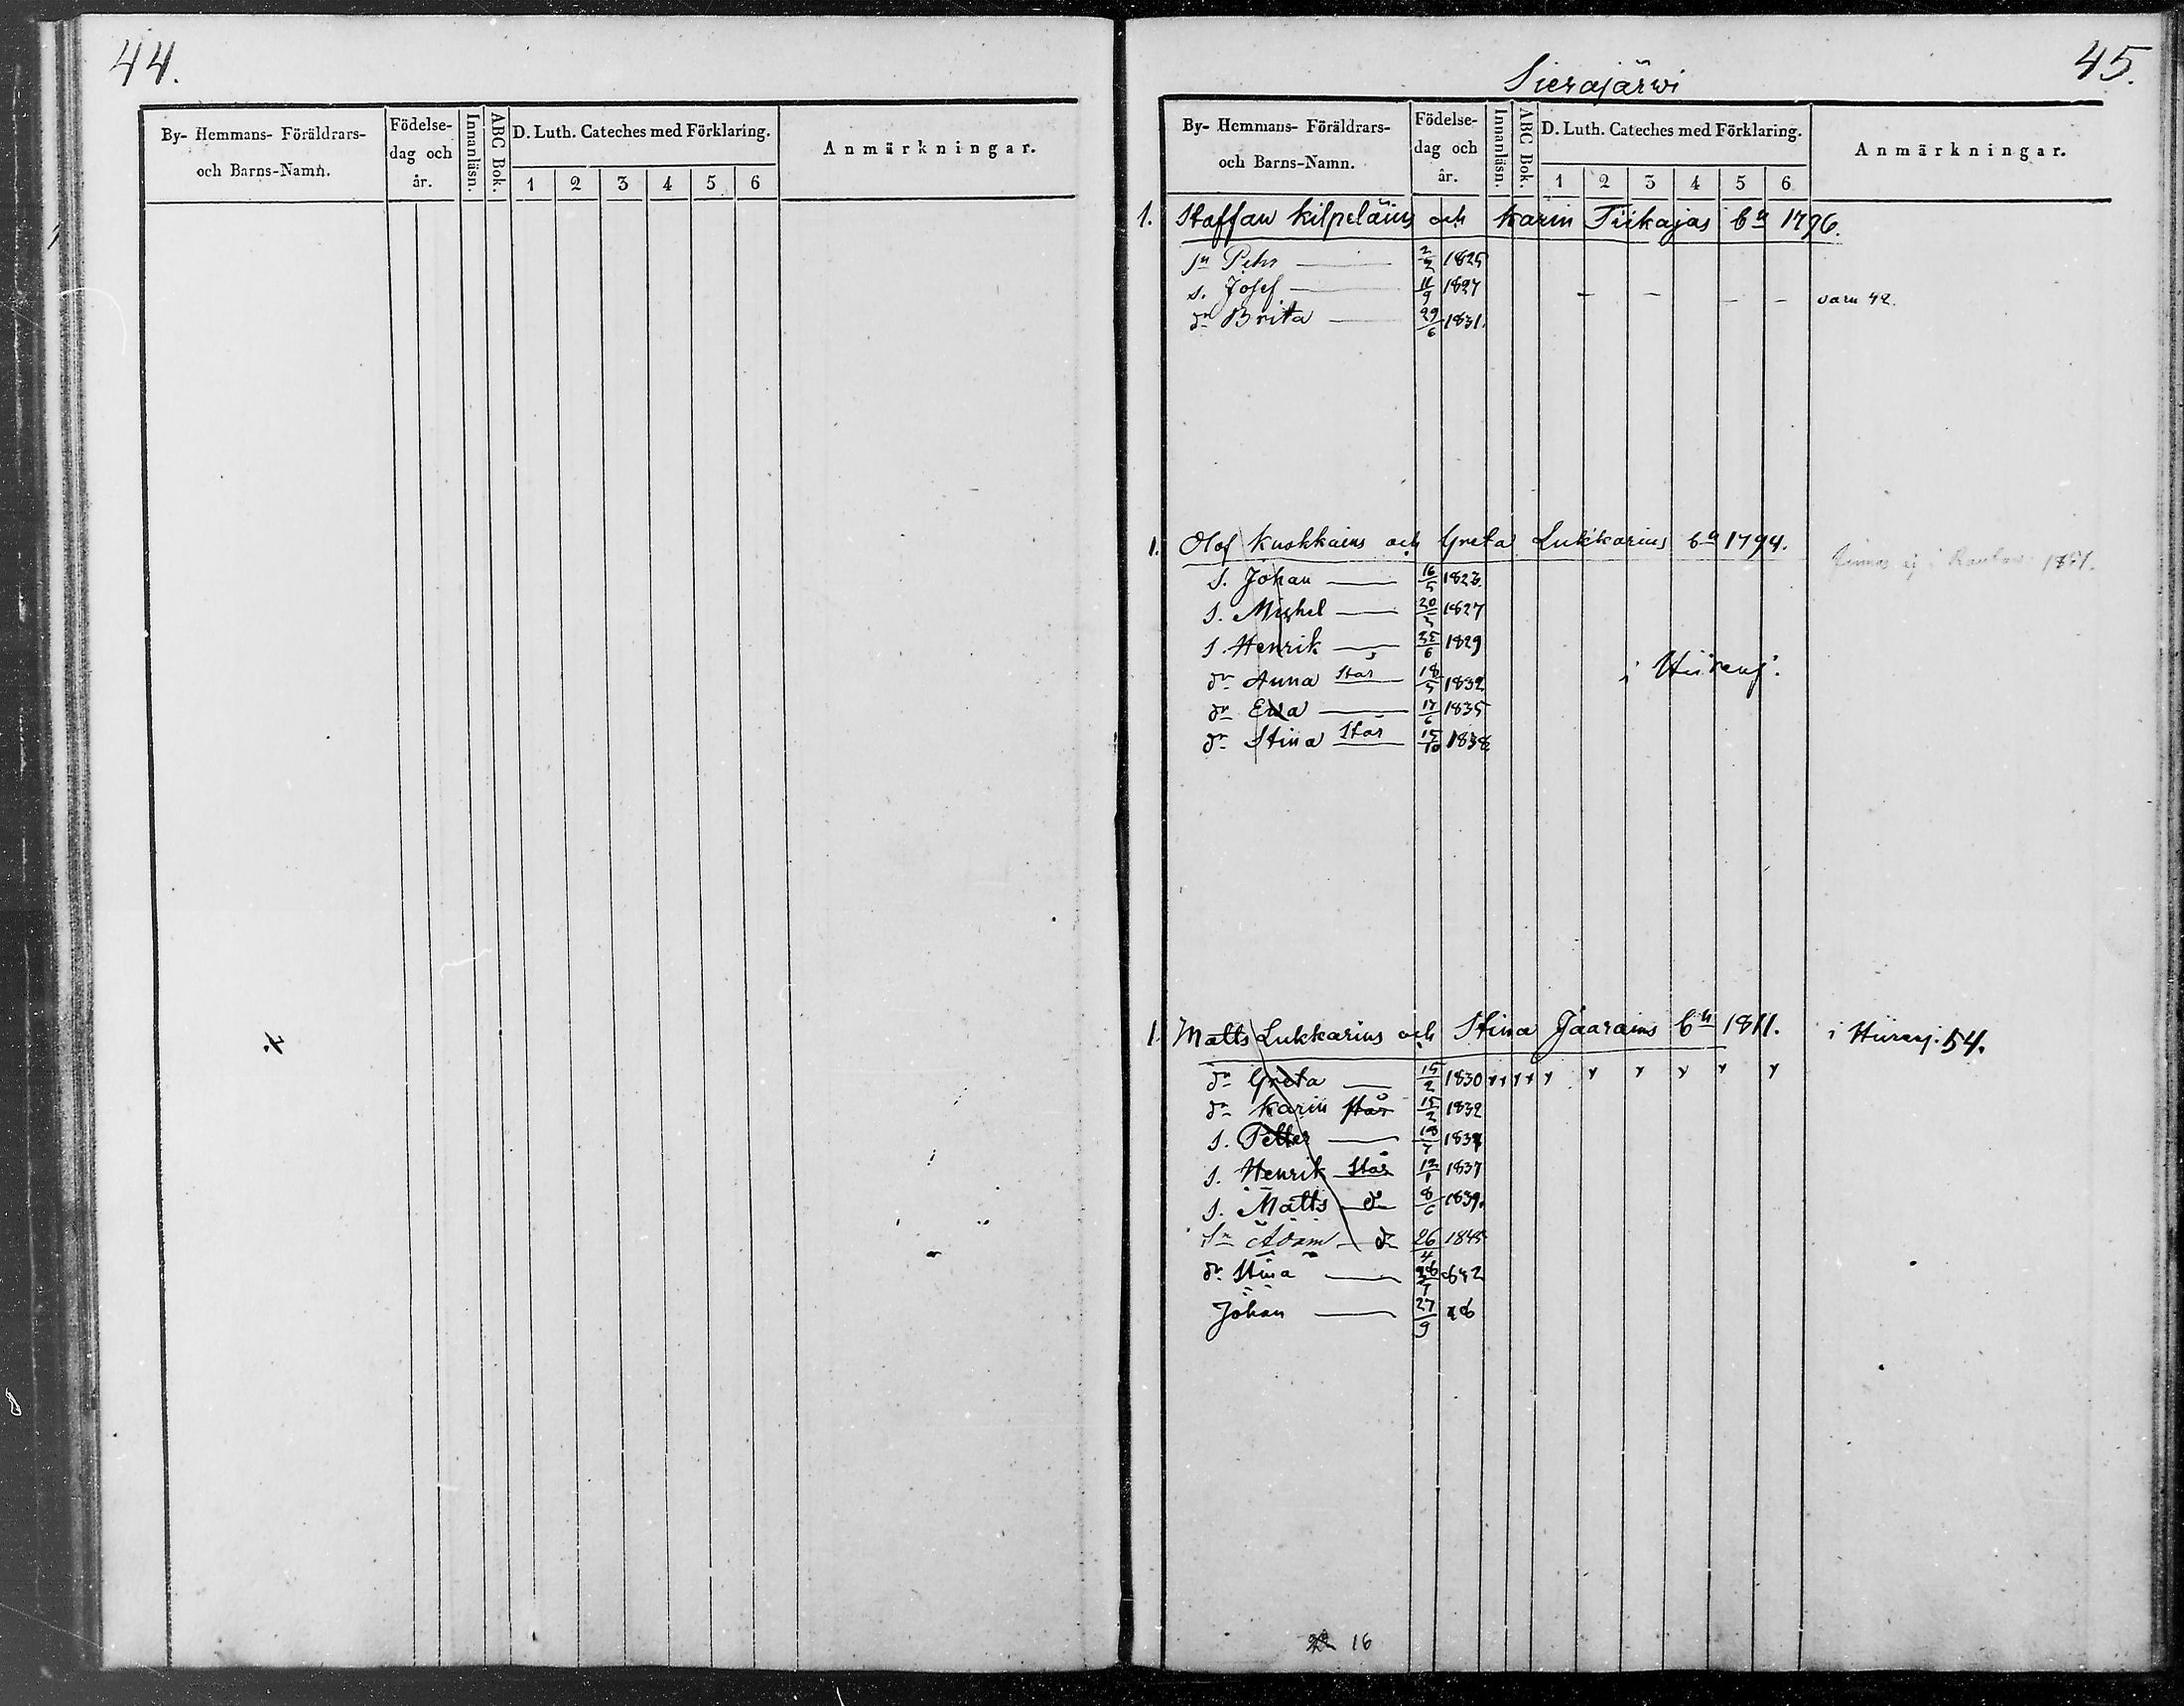 44.
By- Hemmans- Föräldrars- och Barns-Namn.
Födelse- dag och år.
Innanläsn.
ABC Bok.
D. Luth. Cateches med Förklaring.
1 2 3 4 5 6
Anmärkningar.
45.
Sierajärwi
By- Hemmans- Föräldrars- och Barns-Namn.
Födelse- dag och år.
Innanläsn.
ABC Bok.
D. Luth. Cateches med Förklaring.
1 2 3 4 5 6
Anmärkningar.
1. Staffan Kilpeläins och Karin Tiikajas 1796.
sn Pehr 2/2 1825
s. Josef 11/9 1827 — — — — 42.
dr Brita 29/6 1831.
1. Olof Kuokkains och Greta Lukkarius 1794. 
s. Johan 16/5 1823.
s. Mickel 20/3 1827
s. Henrik 25/6 1829
dr Anna står 18/5 1832 i Hiirenj.
dr Ewa 17/6 1835
dr Stina står 15/10 1838
1. Matts Lukkarius och Stina Jaarains 1811. i Hiirenj. 54.
dr Greta 15/2 1830
dr Karin står 15/2 1832
s. Petter 18/7 1834
s. Henrik står 12/1 1837
s. Matts do 8/6 1839.
sn Adam do 26/4 1845
dr Stina
Johan 27/9
16